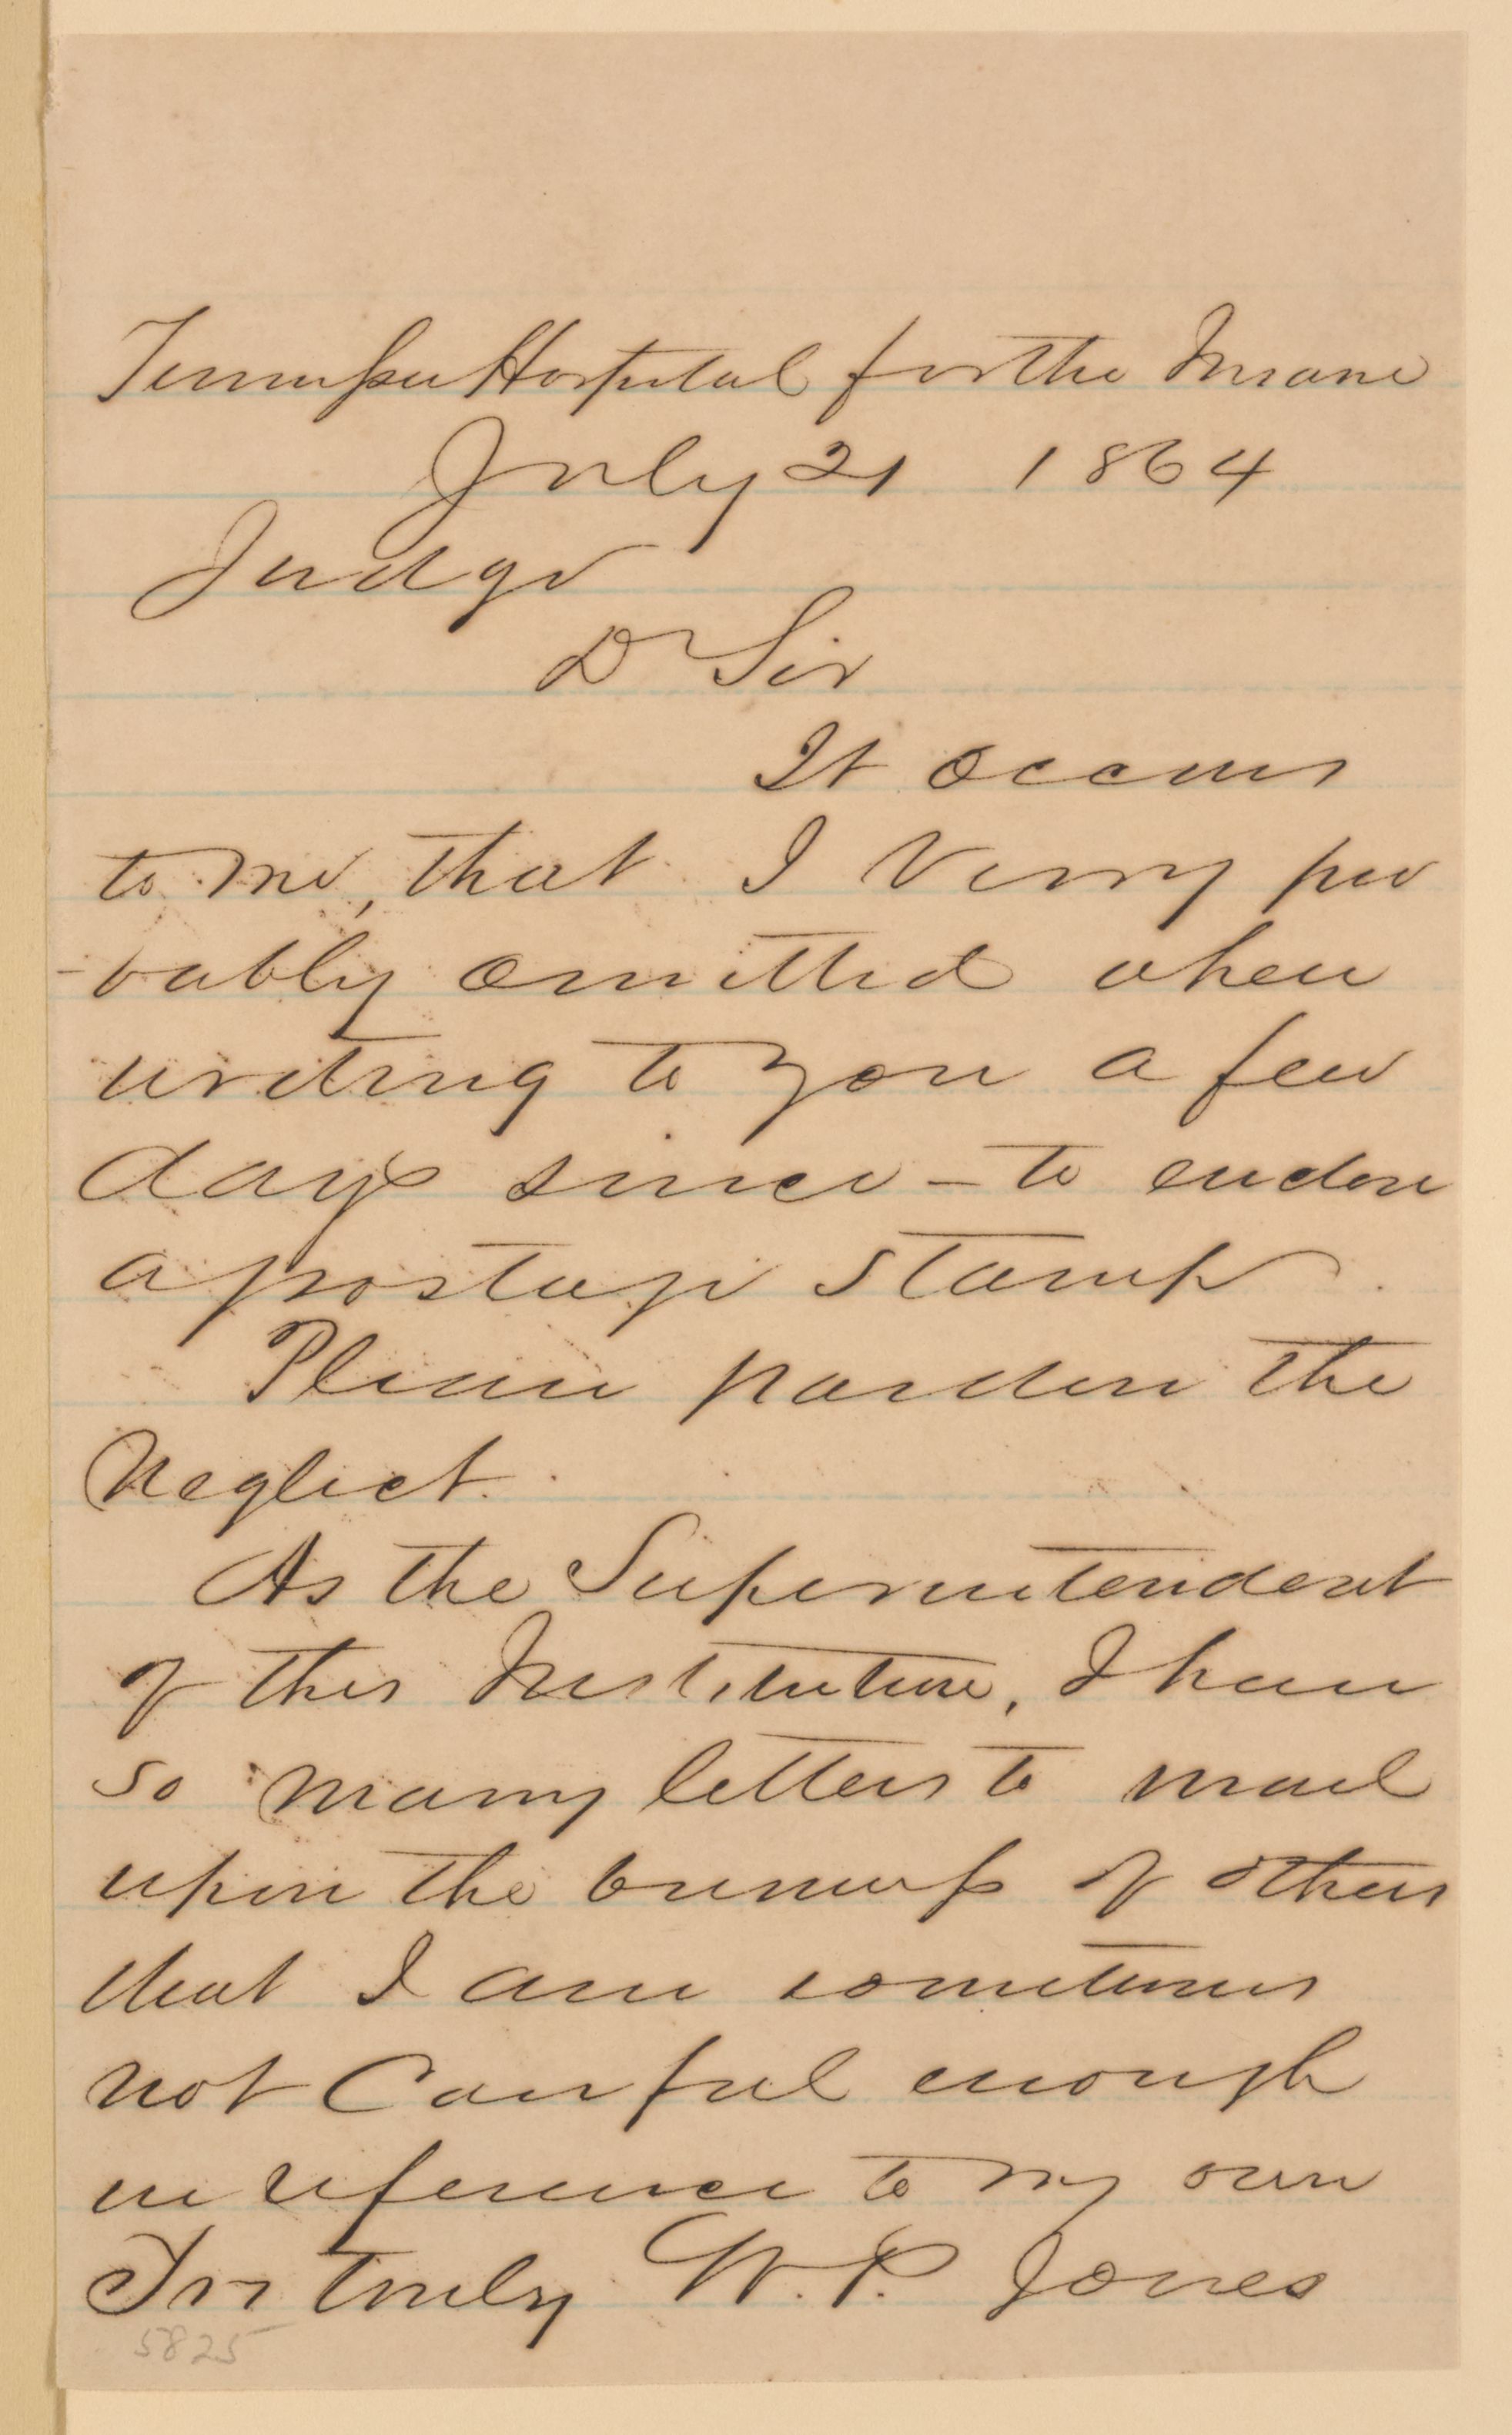 Tennessee Hospital for the Insane
July 21 1864
Judge
Dr Sir
It occurs
to me, that I very pro
-bably omitted when
writing to you a few
days since - to enclose
a postage stamp.
Please pardon the
neglect.
As the Superintendent
of this Institution, I have
so many letters to mail
upon the business of others
that I am sometimes
not Careful enough
in reference to my own
truly W. P. Jones
5825